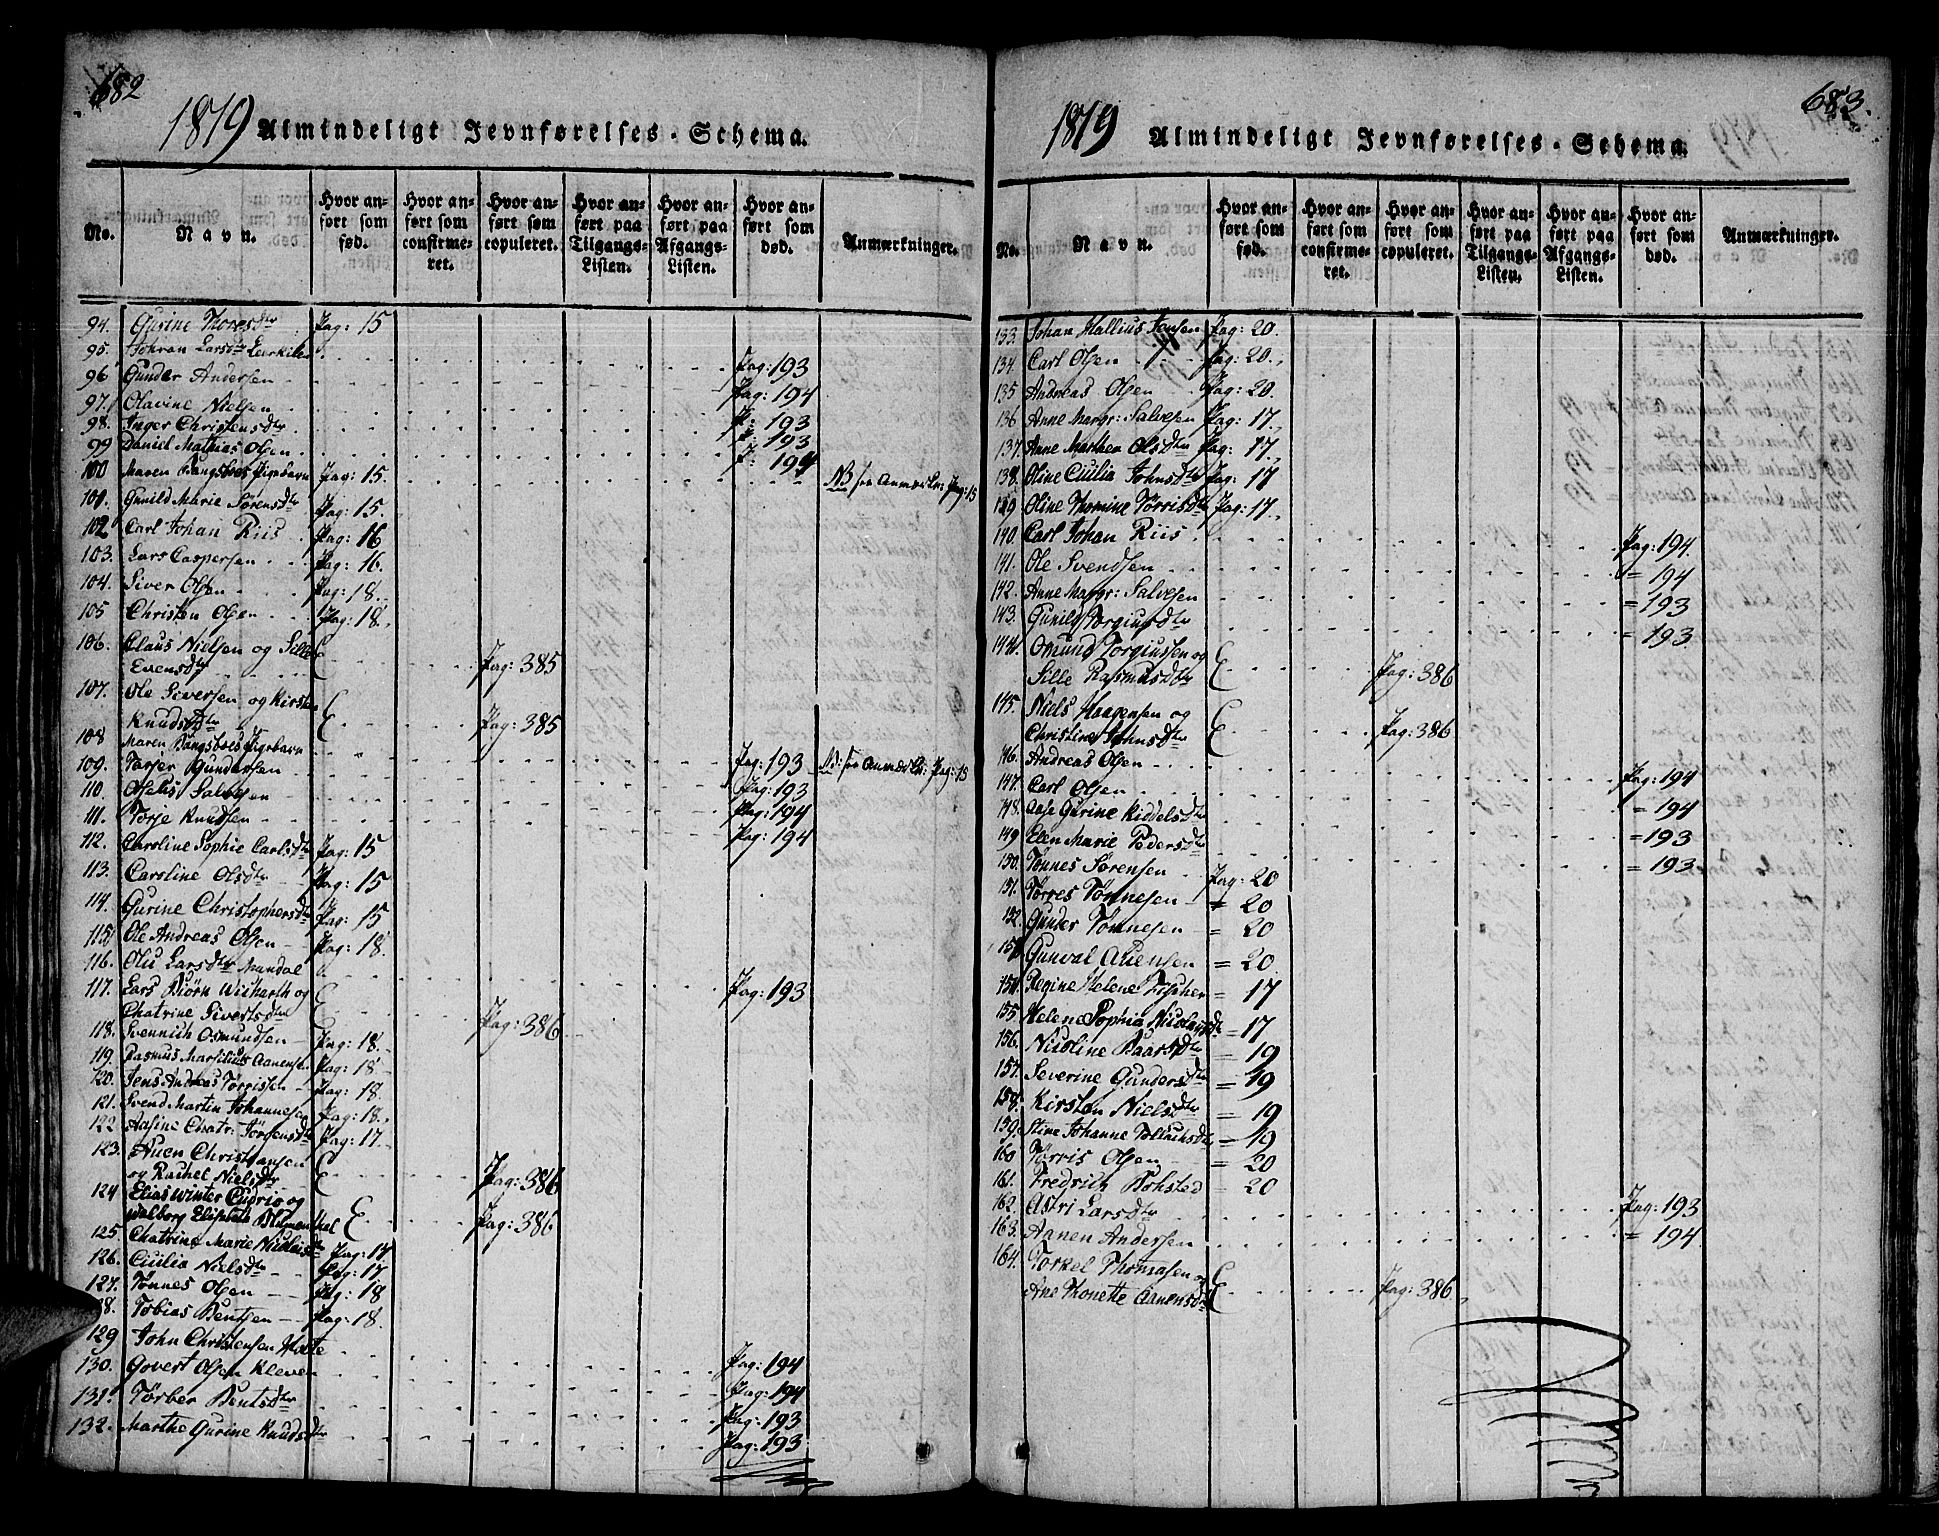 682
1819 Almindeligt Jevnførelses-Schema.
No. Navn. Hvor anført som fød. Hvor anført som confirmeret. Hvor anført som copuleret. Hvor anført paa Tilgangs-Listen. Hvor anført paa Afgangs-Listen. Hvor anført som død. Anmærkninger.
94. Gurine Thoresdtr Pag: 15
95. Larsdtr Pag: 193
96 Gunder Andersen Pag: 194
97. Olavine Nielsen P: 193
98. Inger Christensdtr P: 193
99 Daniel Mathias Olsen P: 194
100 Maren Bangsboes Pigebarn Pag: 15. NB Pag: 15
101. Gunild Marie Sørensdtr Pag: 15.
102 Carl Johan Riis Pag: 16
103. Lars Caspersen Pag: 16.
104. Siver Olsen Pag: 18.
105 Christen Olsen Pag: 18.
106. Claus Nielsen og Sille
Evensdtr Pag: 385
107. Ole Siversen og Kirsten
Knudsdtr Pag: 385
108 Maren Bangsboes Pigebarn Pag: 193 Pag: 15
109. Tarjer Gundersen Pag: 193
110. Salvesen Pag: 194
111. Torje Knudsen Pag: 194
112. Caroline Sophie Carlsdtr Pag: 15
113. Caroline Olsdtr Pag: 15
114. Gurine Christophersdtr Pag: 15
115 Ole Andreas Olsen Pag: 18.
116. Larsdtr Mandal Pag: 193
117. Lars Biørn og
Chatrine Sivertsdtr Pag: 386
118. Svennich Osmundsen Pag: 18.
119. Rasmus Marsilius Aanensen Pag: 18
120. Jens Andreas Tørrissen Pag: 18.
121. Svend Martin Johannesen Pag: 18.
122 Aasine Chatr: Jørgensdtr Pag: 17.
123. Auen Christiansen
og Rachel Nielsdtr Pag: 386
124 Elias Winter og
Walborg Pag: 386
125. Chatrine Marie Nicolaisdtr Pag: 17
126. Cicilia Nielsdtr Pag: 17
127. Tønnes Olsen Pag: 18
128. Tobias Bentsen Pag: 18.
129 John Christensen Pag: 194
130. Govert Olsen Kleven Pag: 194
131. Tørber Bentsdtr Pag: 193
132. Marthe Gurine Knudsdtr Pag: 193
683.
1819 Almindeligt Jevnførelses-Schema.
No. Navn. Hvor anført som fød. Hvor anført som confirmeret. Hvor anført som copuleret. Hvor anført paa Tilgangs-Listen. Hvor anført paa Afgangs-Listen. Hvor anført som død. Anmærkninger.
133. Johan Hallius Jansen Pag: 20.
134. Carl Olsen Pag: 20.
135 Andreas Olsen Pag: 20.
136 Anne Margr: Salvesen Pag: 17.
137. Anne Marthea Olsdtr Pag: 17.
138. Oline Cicilia Johnsdtr Pag: 17
139 Oline Thomine Tørrisdtr Pag: 17.
140. Carl Johan Riis Pag: 194.
141. Ole Svendsen = 194
142. Anne Margr: Salvesen = 193
143. Gunild Torgiusdtr = 193.
144. Osmund Torgiussen og
Sille Rasmusdtr Pag: 386
145. Niels Haagensen og
Christine Johnsdtr Pag: 386
146. Andreas Olsen Pag: 194
147. Carl Olsen = 194
148. Aase Gurine Kiddelsdtr = 193
149 Elen Marie Pedersdtr = 193
150. Tønnes Sørensen Pag: 20
151. Tørres Tønnesen = 20
152. Gunder Tønnesen = 20
153 Gunval Auensen = 20
154. Regine Helene Fischer = 17
155. Helene Sophia Nicolaisdtr = 17
156. Nicoline Baarsdtr = 19
157. Severine Gundersdtr = 19
158. Kirsten Nielsdtr = 19
159. Stine Johanne Tollachsdtr = 19
160 Tørris Olsen = 20
161. Fredrich Bohsted = 20
162. Astri Larsdtr Pag: 193
163. Aanen Andersen = 194
164. Torkel Thomasen og
Ane Thonette Aanensdtr Pag: 386